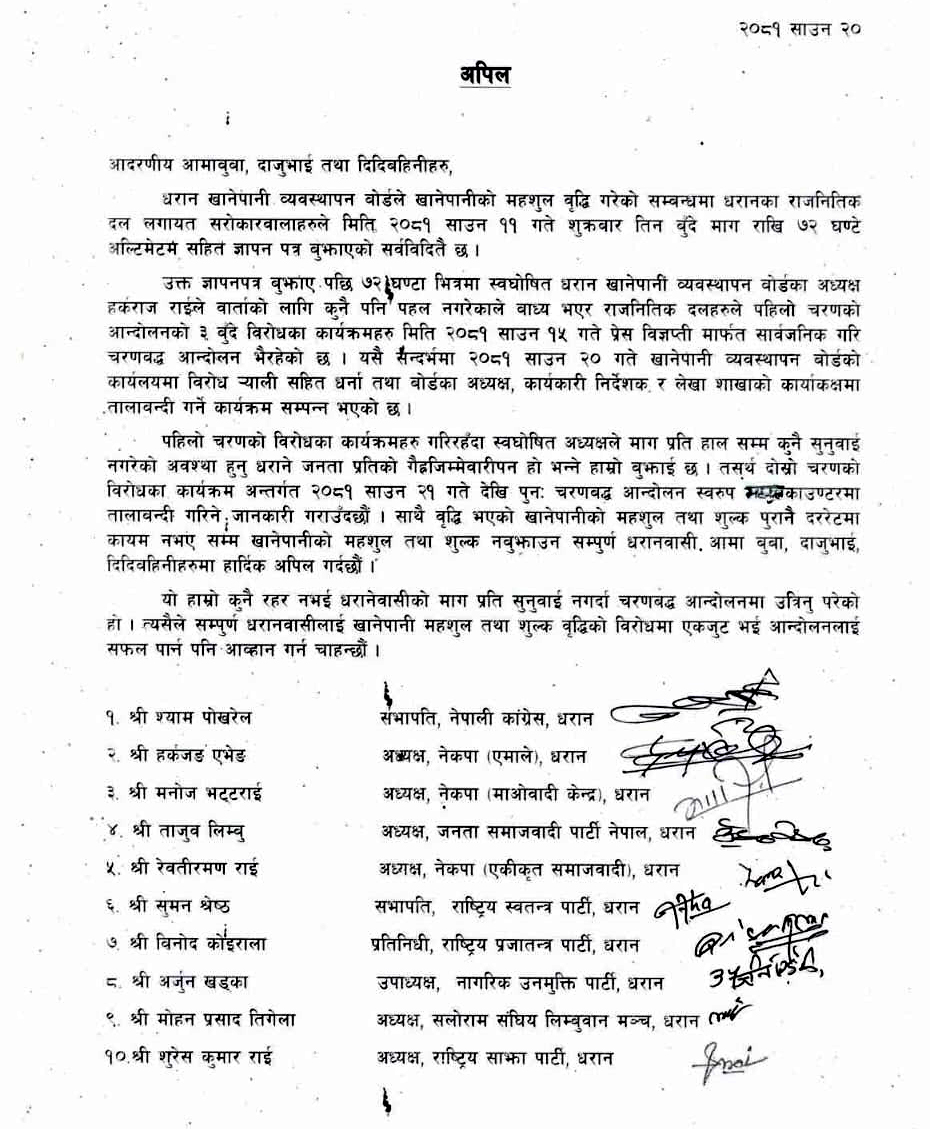 २०८१ साउन २०
अपिल
आदरणीय आमाबुवा, दाजुभाई तथा दिदिवहिनीहरु,
धरान खानेपानी व्यवस्थापन बोर्डले खानेपानीको महशुल वृद्धि गरेको सम्वन्धमा धरानका राजनितिक
दल लगायत सरोकारवालाहरुले मिति २०८१ साउन ११ गते शुक्रबार तिन बुँदे माग राखि ७२ घण्टे
अल्टिमेटम सहित ज्ञापन पत्र बुझाएको सर्वविदितै छ ।
उक्त ज्ञापनपत्र बुझाए पछि ७२ घण्टा भित्रमा स्वघोषित धरान खानेपानी व्यवस्थापन बोर्डका अध्यक्ष
हर्कराज राईले वार्ताको लागि कुनै पनि पहल नगरेकाले वाध्य भएर राजनितिक दलहरुले पहिलो चरणको
आन्दोलनको ३ बुँदे विरोधका कार्यक्रमहरु मिति २०८१ साउन १५ गते प्रेस विज्ञप्ती मार्फत सार्वजनिक गरि
चरणबद्ध आन्दोलन भैरहेको छ । यसै सन्दर्भमा २०८१ साउन २० गते खानेपानी व्यवस्थापन बोर्डको
कार्यलयमा विरोध र्‍याली सहित धर्ना तथा बोर्डका अध्यक्ष, कार्यकारी निर्देशक र लेखा शाखाको कार्याकक्षमा
तालाबन्दी गर्ने कार्यक्रम सम्पन्न भएको छ ।
पहिलो चरणको विरोधका कार्यक्रमहरु गरिरहँदा स्वघोषित अध्यक्षले माग प्रति हाल सम्म कुनै सुनुवाई
नगरेको अवश्था हुनु धराने जनता प्रतिको गैह्रजिम्मेवारीपन हो भन्ने हाम्रो बुझाई छ । तसर्थ दोस्रो चरणको
विरोधका कार्यक्रम अन्तर्गत २०८१ साउन २१ गते देखि पुनः चरणबद्ध आन्दोलन स्वरुप काउण्टरमा
तालाबन्दी गरिने जानकारी गराउँदछौं । साथै वृद्धि भएको खानेपानीको महशुल तथा शुल्क पुरानै दररेटमा
कायम नभए सम्म खानेपानीको महशुल तथा शुल्क नबुझाउन सम्पुर्ण धरानवासी, आमा बुवा, दाजुभाई,
दिदिवहिनीहरुमा हार्दिक अपिल गर्दछौं ।
यो हाम्रो कुनै रहर नभई धरानेवासीको माग प्रति सुनुवाई नगर्दा चरणबद्ध आन्दोलनमा उत्रिनु परेको
हो । त्यसैले सम्पुर्ण धरानवासीलाई खानेपानी महशुल तथा शुल्क वृद्धिको विरोधमा एकजुट भई आन्दोलनलाई
सफल पार्न पनि आव्हान गर्न चाहन्छौं ।
१. श्री श्याम पोखरेल सभापति, नेपाली कांग्रेस, धरान
२. श्री हर्कजङ एभेङ अध्यक्ष, नेकपा (एमाले), धरान
३. श्री मनोज भट्टराई अध्यक्ष, नेकपा (माओवादी केन्द्र), धरान
४. श्री ताजुव लिम्बु अध्यक्ष, जनता समाजवादी पार्टी नेपाल, धरान
५. श्री रेवतीरमण राई अध्यक्ष, नेकपा (एकीकृत समाजवादी), धरान
६. श्री सुमन श्रेष्ठ सभापति, राष्ट्रिय स्वतन्त्र पार्टी, धरान
७. श्री विनोद कोइराला प्रतिनिधी, राष्ट्रिय प्रजातन्त्र पार्टी, धरान
८. श्री अर्जुन खड्का उपाध्यक्ष, नागरिक उनमुक्ति पार्टी, धरान
९. श्री मोहन प्रसाद तिगेला अध्यक्ष, सलोराम संघिय लिम्बुवान मञ्च, धरान
१०.श्री शुरेस कुमार राई अध्यक्ष, राष्ट्रिय साझा पार्टी, धरान